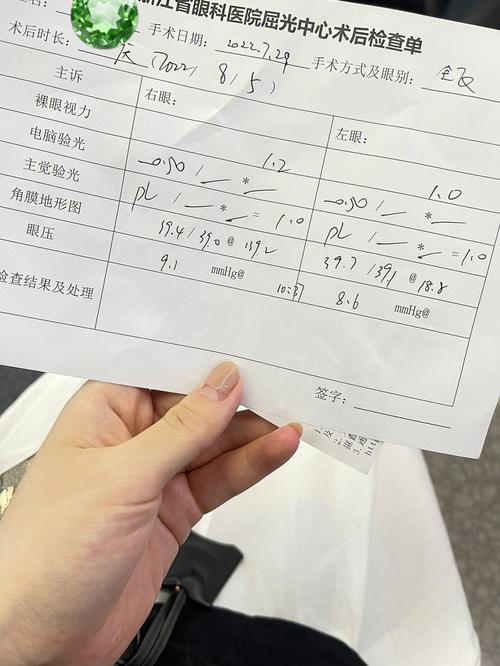 浙江省眼科医院屈光中心术后检查单
姓名:
术后时长: 天 (2022/8/5) 手术日期: 2022.7.29 手术方式及眼别:
主诉 右眼: 左眼:
裸眼视力 1.2 1.0
电脑验光 -0.50 / — * — -0.50 / — * —
主觉验光 PL / — * — = 1.0 PL / — * — = 1.0
角膜地形图 39.4 / 39.0 @ 139.2 39.7 / 39.1 @ 18.8
眼压 9.1 mmHg@ 10:37 8.6 mmHg@
检查结果及处理
签字: